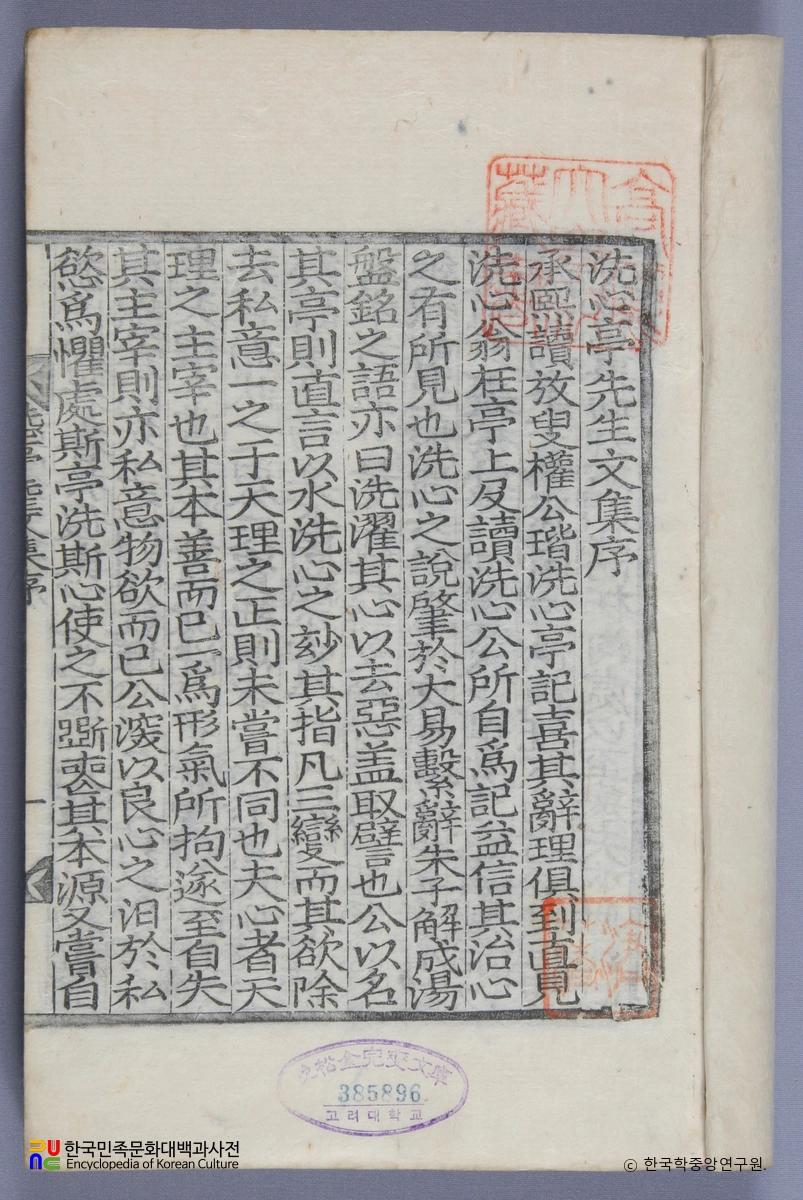 洗心亭先生文集序
承熙讀放叟權公璿洗心亭記喜其辭理俱到直見
洗心翁在亭上及讀洗心公所自爲記益信其治心
之有所見也洗心之說肇於大易繫辭朱子解成湯
盤銘之語亦曰洗濯其心以去惡盖取譬言也公以名
其亭則直言以水洗心之玅其指凡三變而其欲除
去私意一之于天理之正則未嘗不同也夫心者天
理之主宰也其本善而已一爲形氣所拘遂至自失
其主宰則亦私意物欲而已公深以良心之汩於私
慾爲懼處斯亭洗斯心使之不斲喪其本源又嘗自
亭先生文集序
一
藏
高
晩松金完燮文庫
385896
고려대학교
한국민족문화대백과사전
Encyclopedia of Korean Culture
© 한국학중앙연구원.